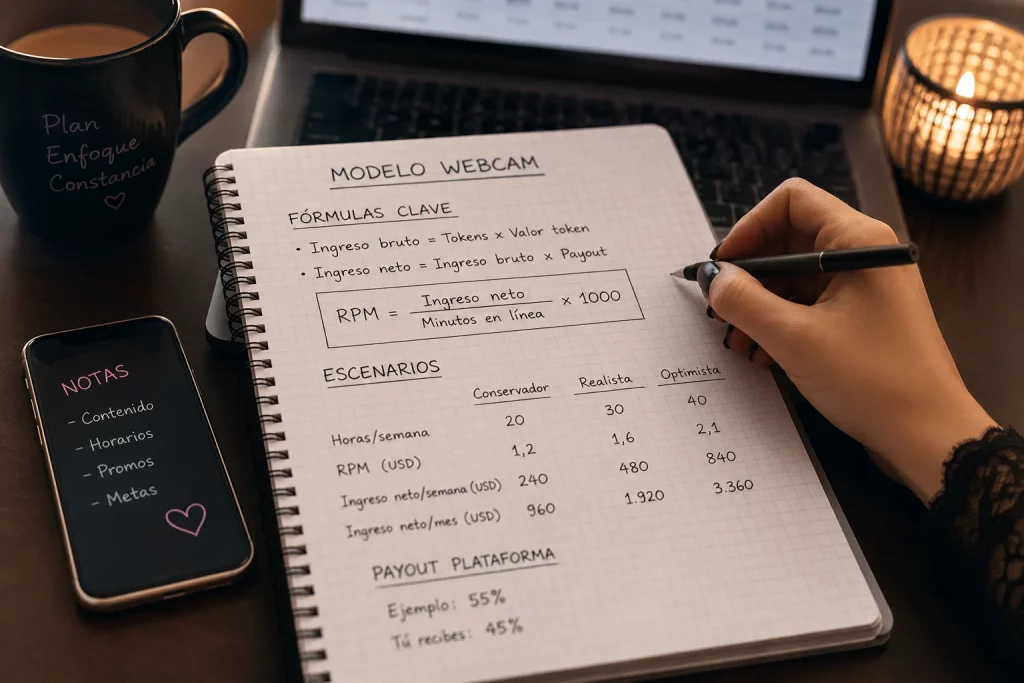 Plan
Enfoque
Constancia
MODELO WEBCAM
FÓRMULAS CLAVE
• Ingreso bruto = Tokens x Valor token
• Ingreso neto = Ingreso bruto x Payout
RPM = Ingreso neto / Minutos en línea x 1000
ESCENARIOS
Conservador Realista Optimista
Horas/semana 20 30 40
RPM (USD) 1,2 1,6 2,1
Ingreso neto/semana (USD) 240 480 840
Ingreso neto/mes (USD) 960 1.920 3.360
PAYOUT PLATAFORMA
Ejemplo: 55%
Tú recibes: 45%
NOTAS
- Contenido
- Horarios
- Promos
- Metas